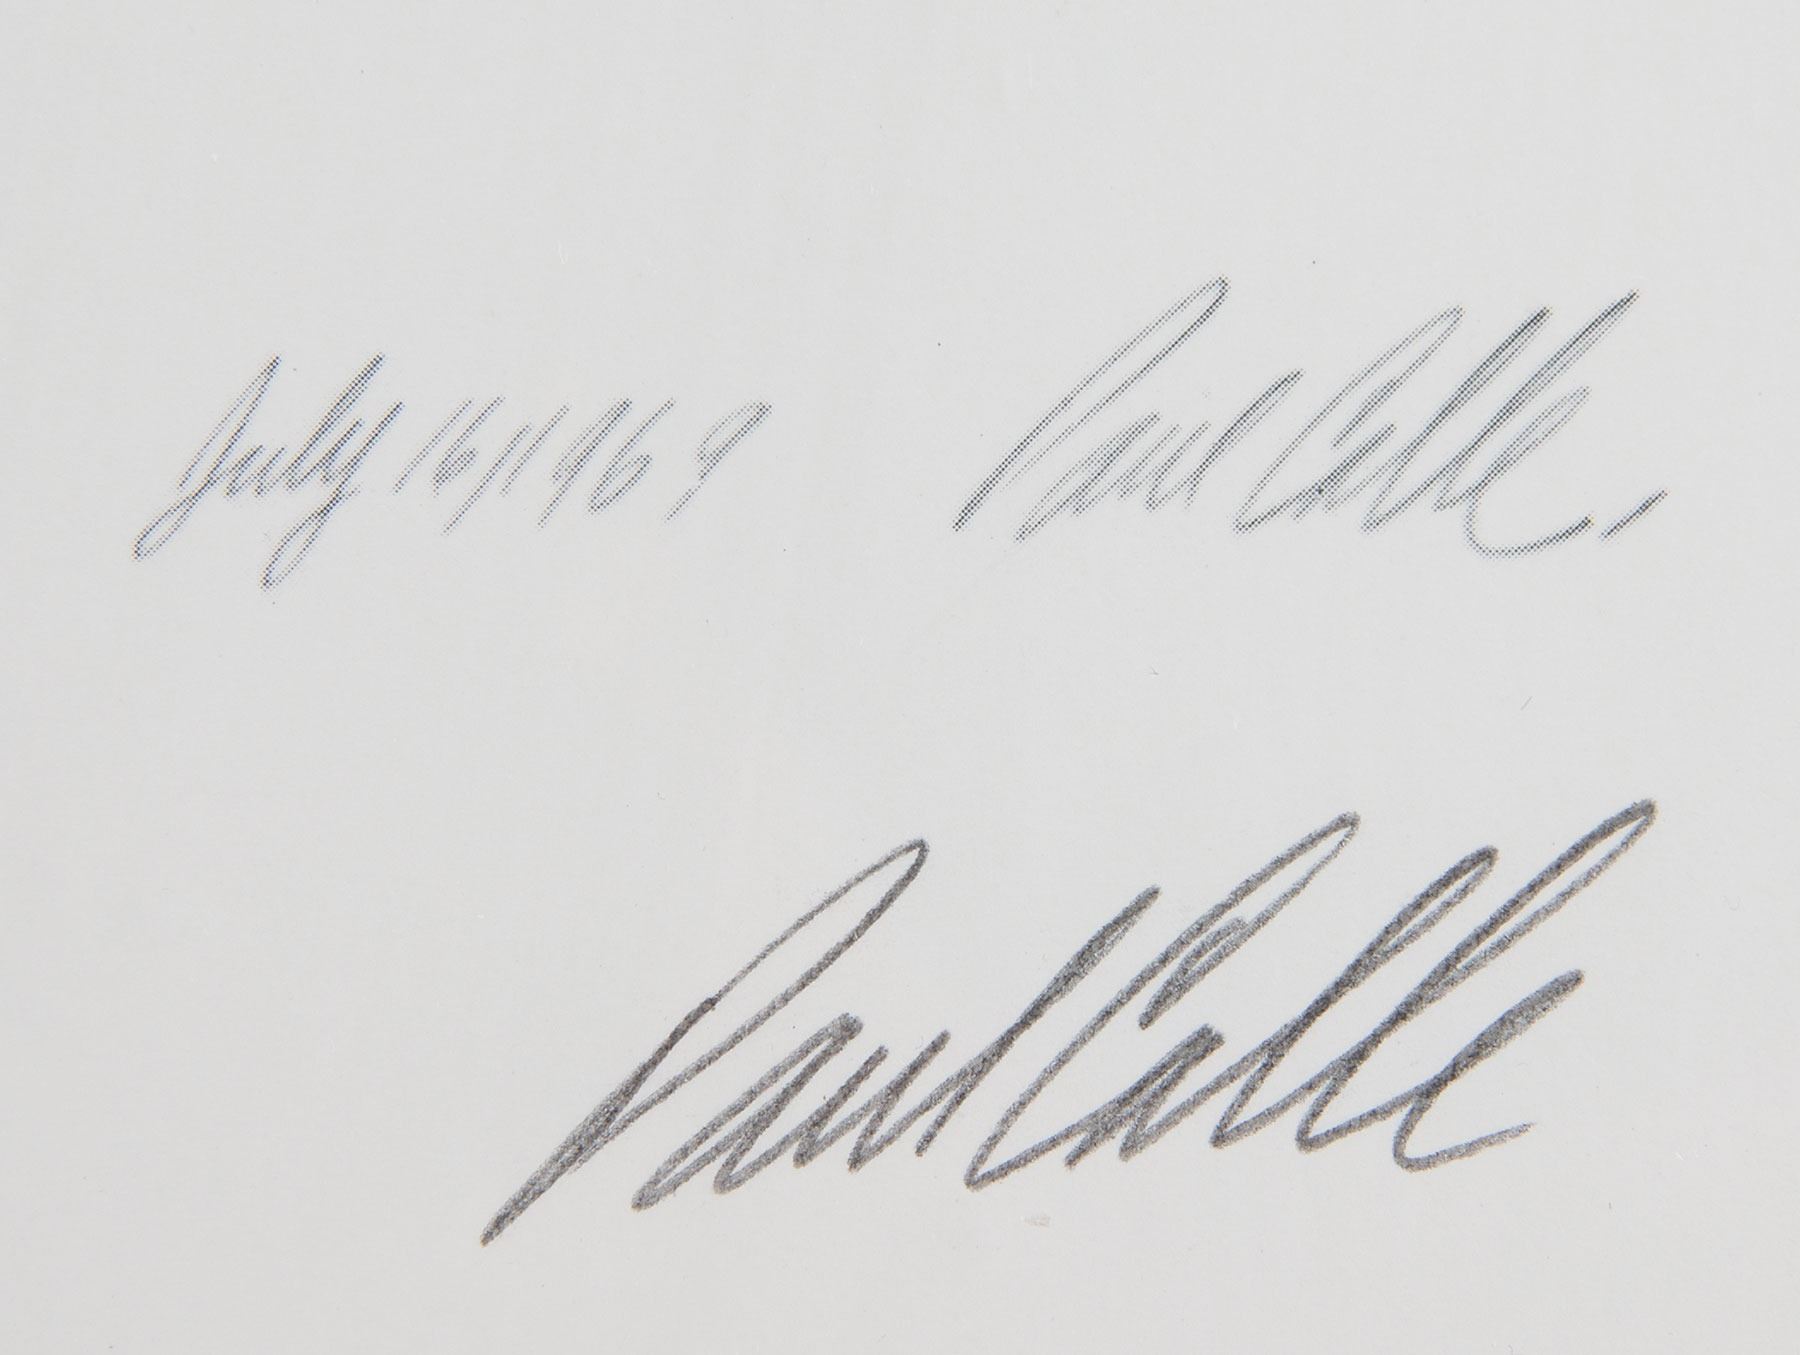 July 16, 1969 Paul Calle.
Paul Calle